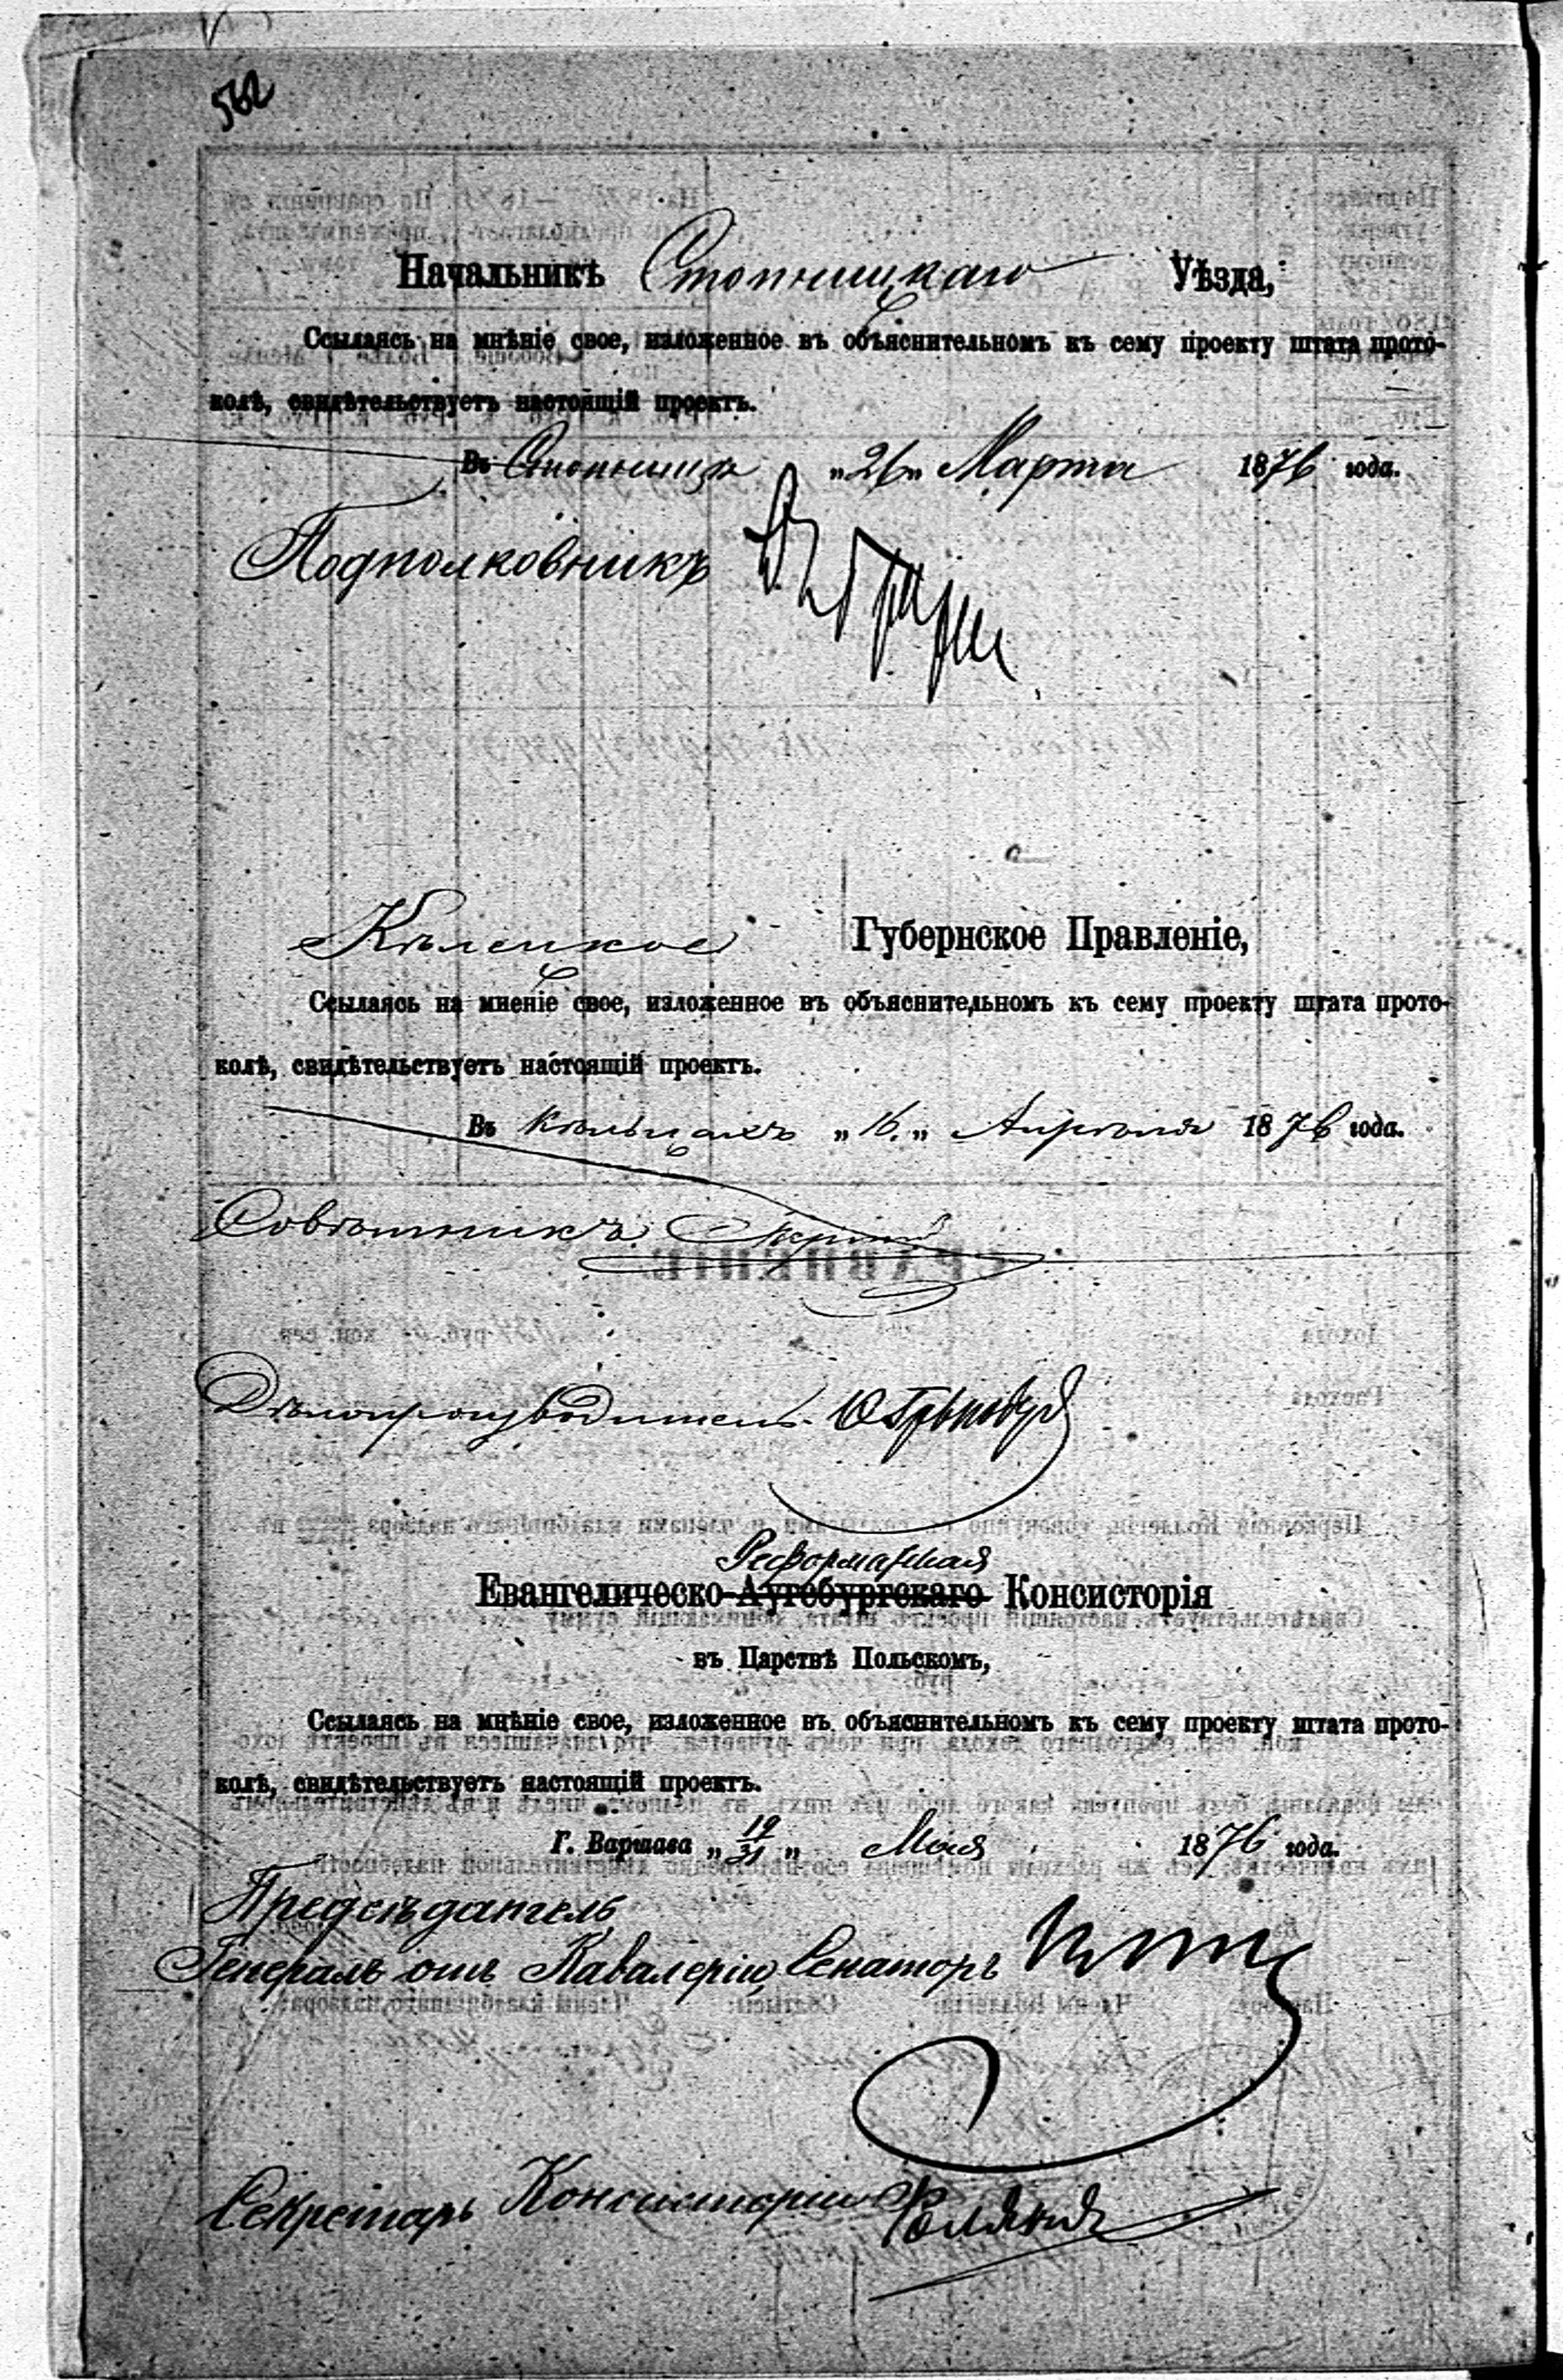 562
Начальникъ Стопницкаго Уѣзда,
Ссылаясь на мнѣніе свое, изложенное въ объяснительномъ къ сему проекту штата прото-
колѣ, свидѣтельствуетъ настоящій проектъ.
Въ Стопницѣ „26„ Марта 1876 года.
Подполковникъ
Кѣлецкое Губернское Правленіе,
Ссылаясь на мненіе свое, изложенное въ объяснительномъ къ сему проекту штата прото-
колѣ, свидѣтельствуетъ настоящій проектъ.
Въ Кѣльцахъ „16„ Апрѣля 1876 года.
Совѣтникъ
Дѣлопроизводитель
Реформатская
Евангелическо-Аугсбургскаго Консисторія
въ Царствѣ Польскомъ,
Ссылаясь на мнѣніе свое, изложенное въ объяснительномъ къ сему проекту штата прото-
колѣ, свидѣтельствуетъ настоящій проектъ.
Г. Варшава „19/31„ Мая 1876 года.
Предсѣдатель
Генералъ отъ Кавалеріи, Сенаторъ
Секретарь Консисторіи